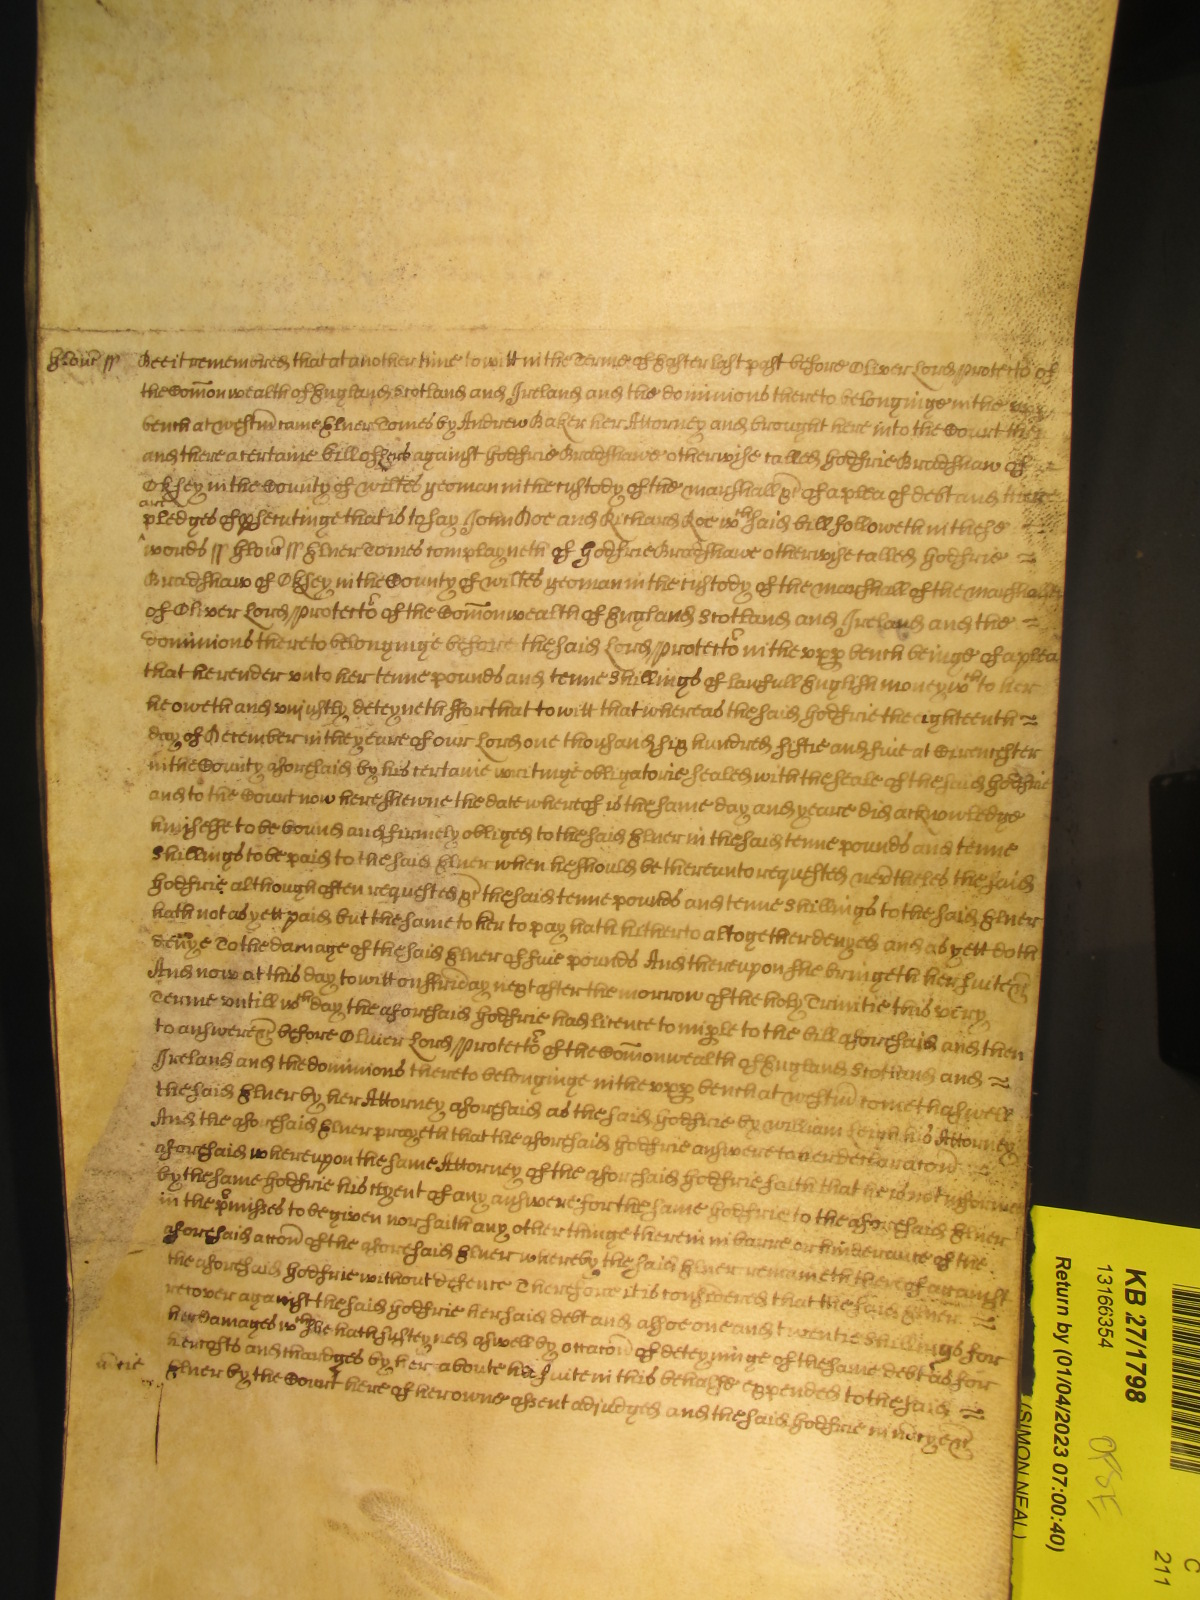 Glouc ss Bee it remembred that at another time to witt in the Terme of Easter last past before Oliver Lord Protector of
the Com̄onwealth of England Scotland and Ireland and the dominions thereto belonginge in the upp
bench at Westm̄ came Elner Tomes by Andrew Baker her Attorney and brought here into the Court then
and there a certaine bill of hers against Godfrie Bradshawe otherwise called Godfrie Bradshaw of
Oksey in the County of Wiltes yeoman in the custody of the marshall &c of a plea of debt and there
are
pledges of p̱secutinge that is to say John Doe and Richard Roe wch said bill followeth in these
words ss Glouc̄ ss Elner Tomes complayneth of Godfrie Bradshawe otherwise called Godfrie
Bradshaw of Oksey in the County of Wiltes yeoman in the custody of the marshall of the marshalsey
of Oliver Lord Protector of the Com̄onwealth of England Scotland and Ireland and the
dominions thereto belonginge before the said Lord Protector in the upp bench beinge of a plea
that he render unto her tenne pounds and tenne shillings of lawfull English money wch to her
he oweth and uniustly deteyneth ffor that to witt that whereas the said Godfrie the eighteenth
day of December in the yeare of our Lord one thousand six hundred fiftie and five at Cirencester
in the County aforesaid by his certaine writinge obligatorie sealed with the seale of the said Godfrie
and to the Court now here shewne the date whereof is the same day and yeare did acknowledge
himselfe to be bound and firmely obliged to the said Elner in the said tenne pounds and tenne
shillings to be paid to the said Elner when he should be thereunto requested nev̄theles the said
Godfrie although often requested &c the said tenne pounds and tenne shillings to the said Elner
hath not as yett paid but the same to her to pay hath hitherto altogether denyed and as yett doth
denye To the damage of the said Elner of five pounds And thereupon she bringeth her suite &c
And now at this day to witt on ffriday next after the morrow of the holy Trinitie this very
Terme untill wch day the aforesaid Godfrie had licence to imple to the bill aforesaid and then
to answere &c before Oliver Lord Protector of the Com̄onwealth of England Scotland and
Ireland and the dominions thereto belonginge in the upp bench at Westm̄ cometh aswell
the said Elner by her Attorney aforesaid as the said Godfrie by William Leigh his Attorney
And the aforesaid Elner prayeth that the aforesaid Godfrie answere to her declaracon̄
aforesaid whereupon the same Attorney of the aforesaid Godfrie saith that he is not informed
by the same Godfrie his clyent of any answere for the same Godfrie to the aforesaid Elner
in the p̄misses to be given nor saith any other thinge therein in barre or hinderance of the
aforesaid accon̄ of the aforesaid Elner whereby the said Elner remaineth thereof against
the aforesaid Godfrie without defence Therefore it is considered that the said Elner
recover against the said Godfrie her said debt and alsoe one and twentie shillings for
her damages wch she hath susteyned aswell by occacon̄ of deteyninge of the same debt as for
her costs and chardges by her aboute her suite in this behalfe expended to the said
Elner by the Court here of her owne assent adjudged and the said Godfrie in m̄cye &c
KB 27/1798
13166354
Return by (01/04/2023 07:00:40)
(SIMON NEAL)
C
211